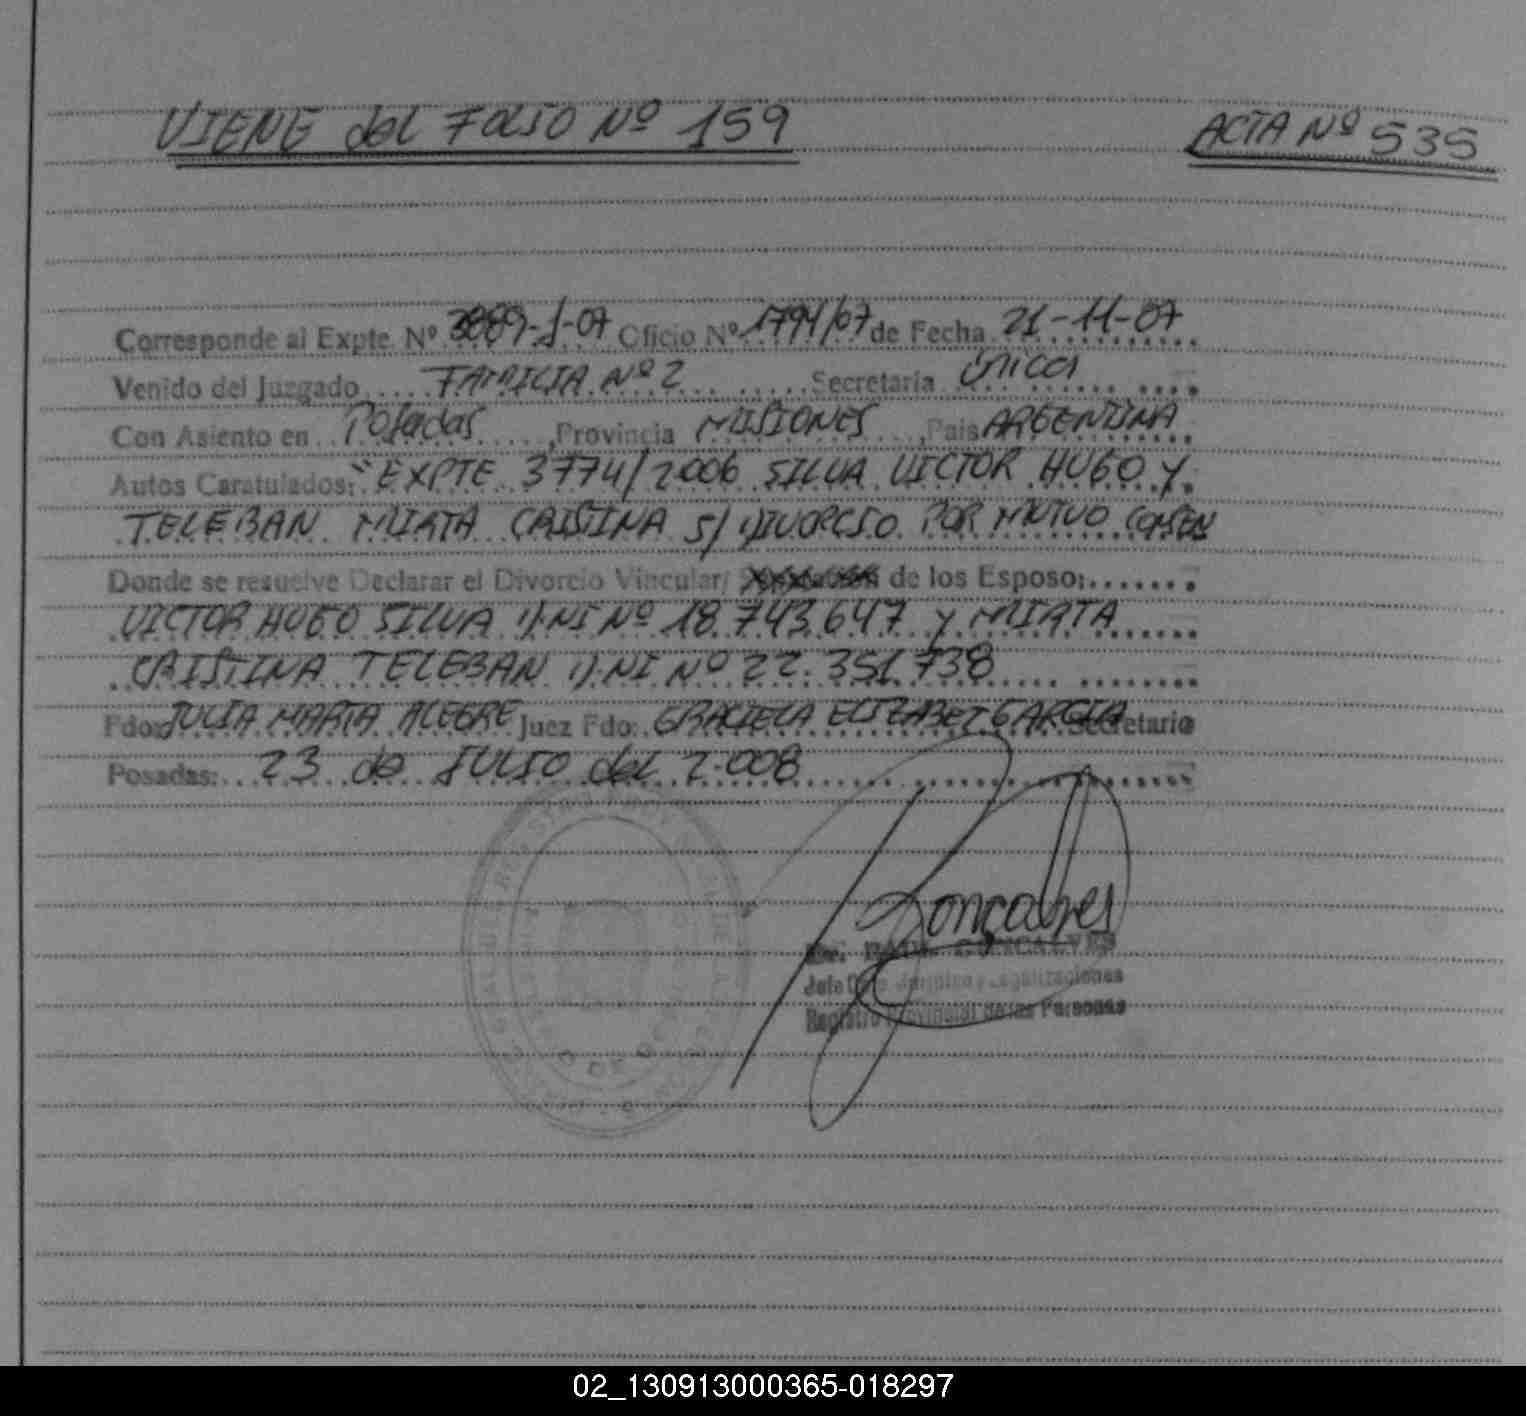 VIENE del FOLIO Nº 159
ACTA Nº 535
Corresponde al Expte Nº 3889-J-07 Oficio Nº 1794/07 de Fecha 21-11-07
Venido del Juzgado FAMILIA Nº 2 Secretaria única
Con Asiento en Posadas, Provincia MISIONES, Pais ARGENTINA
Autos Caratulados: "EXPTE 3774/2006 SILVA VICTOR HUGO Y
TELEBAN MIRTA CRISTINA S/ DIVORCIO POR MUTUO CONSEN
Donde se resuelve Declarar el Divorcio Vincular/ de los Esposo:
VICTOR HUGO SILVA D.NI Nº 18.743.647 y MIRTA
CRISTINA TELEBAN D.NI Nº 22.351.738
Fdo: JULIA MARTA ALEGRE Juez Fdo: GRACIELA ELIZABET GARCIA Secretario
Posadas: 23 de JULIO del 2.008
Gonçalves
Dr. RAUL GONCALVES
Jefe Juridico y Legalizaciones
Registro Provincial de las Personas
02_130913000365-018297